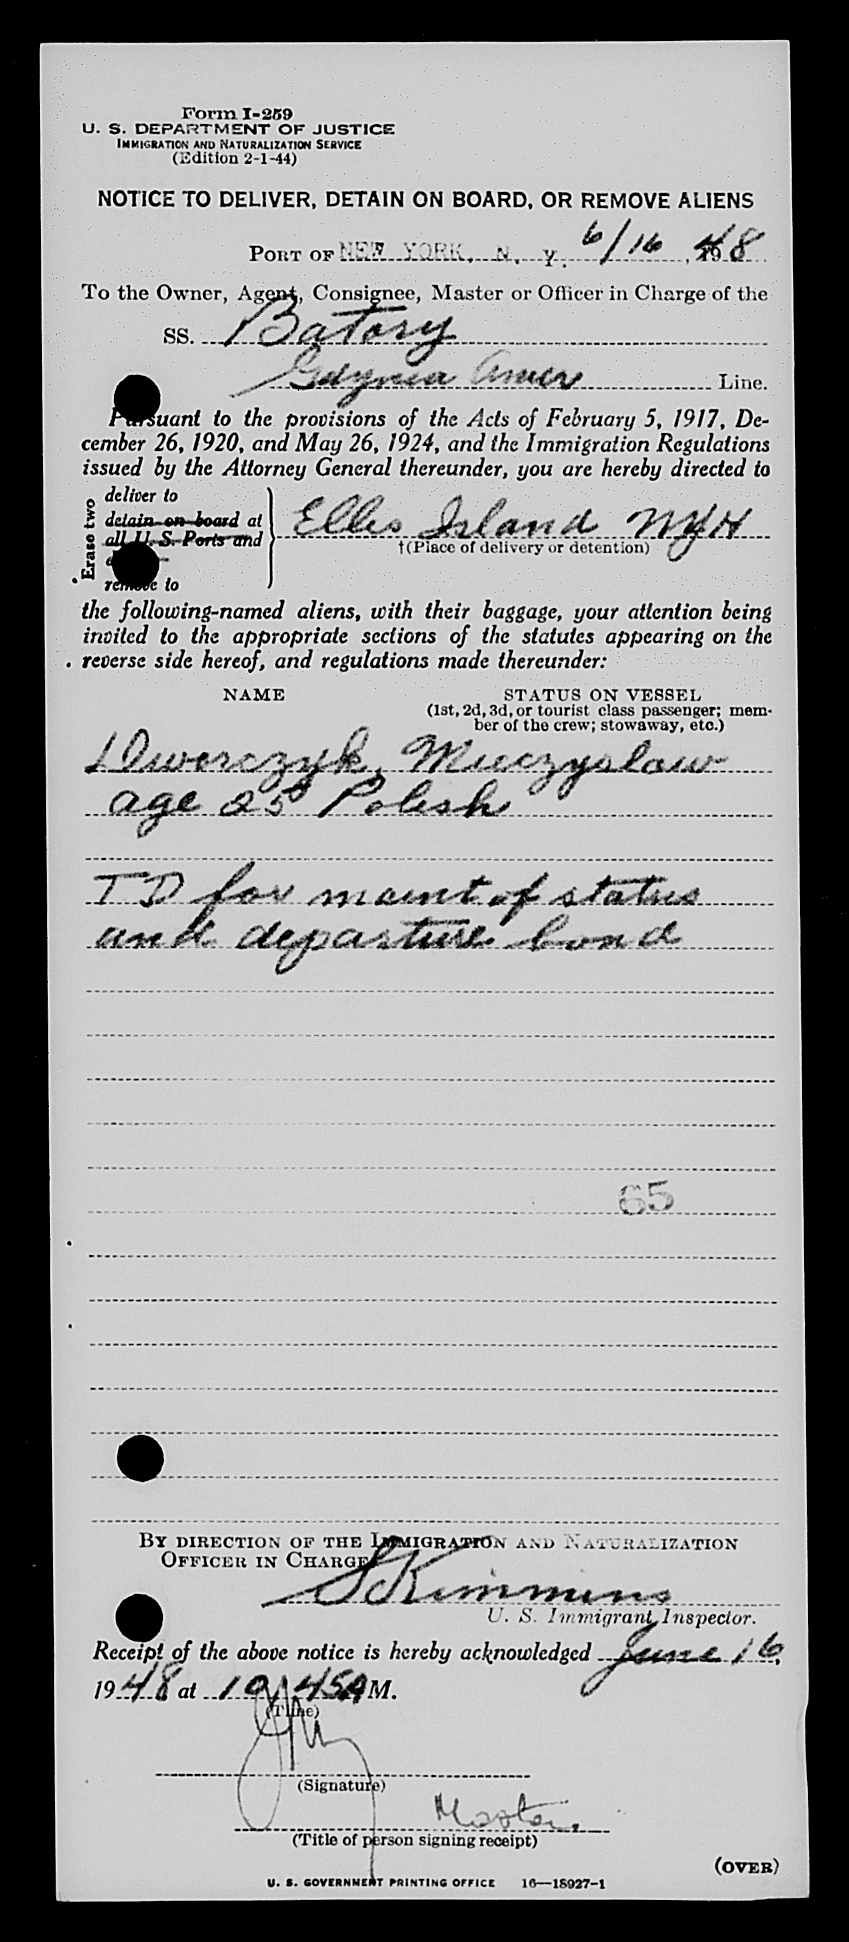 Form I-259
U. S. DEPARTMENT OF JUSTICE
IMMIGRATION AND NATURALIZATION SERVICE
(Edition 2-1-44)
NOTICE TO DELIVER, DETAIN ON BOARD, OR REMOVE ALIENS
PORT OF NEW YORK, N. Y. 6/16, 1948
To the Owner, Agent, Consignee, Master or Officer in Charge of the
SS. Batory
Gdynia Amer Line.
Pursuant to the provisions of the Acts of February 5, 1917, De-
cember 26, 1920, and May 26, 1924, and the Immigration Regulations
issued by the Attorney General thereunder, you are hereby directed to
Erase two
deliver to
detain on board at
all U. S. Ports and
remove to
Ellis Island NYH
†(Place of delivery or detention)
the following-named aliens, with their baggage, your attention being
invited to the appropriate sections of the statutes appearing on the
reverse side hereof, and regulations made thereunder:
NAME STATUS ON VESSEL
(1st, 2d, 3d, or tourist class passenger; mem-
ber of the crew; stowaway, etc.)
Dworczyk, Mieczyslaw
age 25 Polish
TD for maint of status
and departure bond
65
BY DIRECTION OF THE IMMIGRATION AND NATURALIZATION
OFFICER IN CHARGE
S Kimmins
U. S. Immigrant Inspector.
Receipt of the above notice is hereby acknowledged June 16,
1948 at 10:45 AM.
(Time)
(Signature)
(Title of person signing receipt)
(OVER)
U. S. GOVERNMENT PRINTING OFFICE 16—18927-1